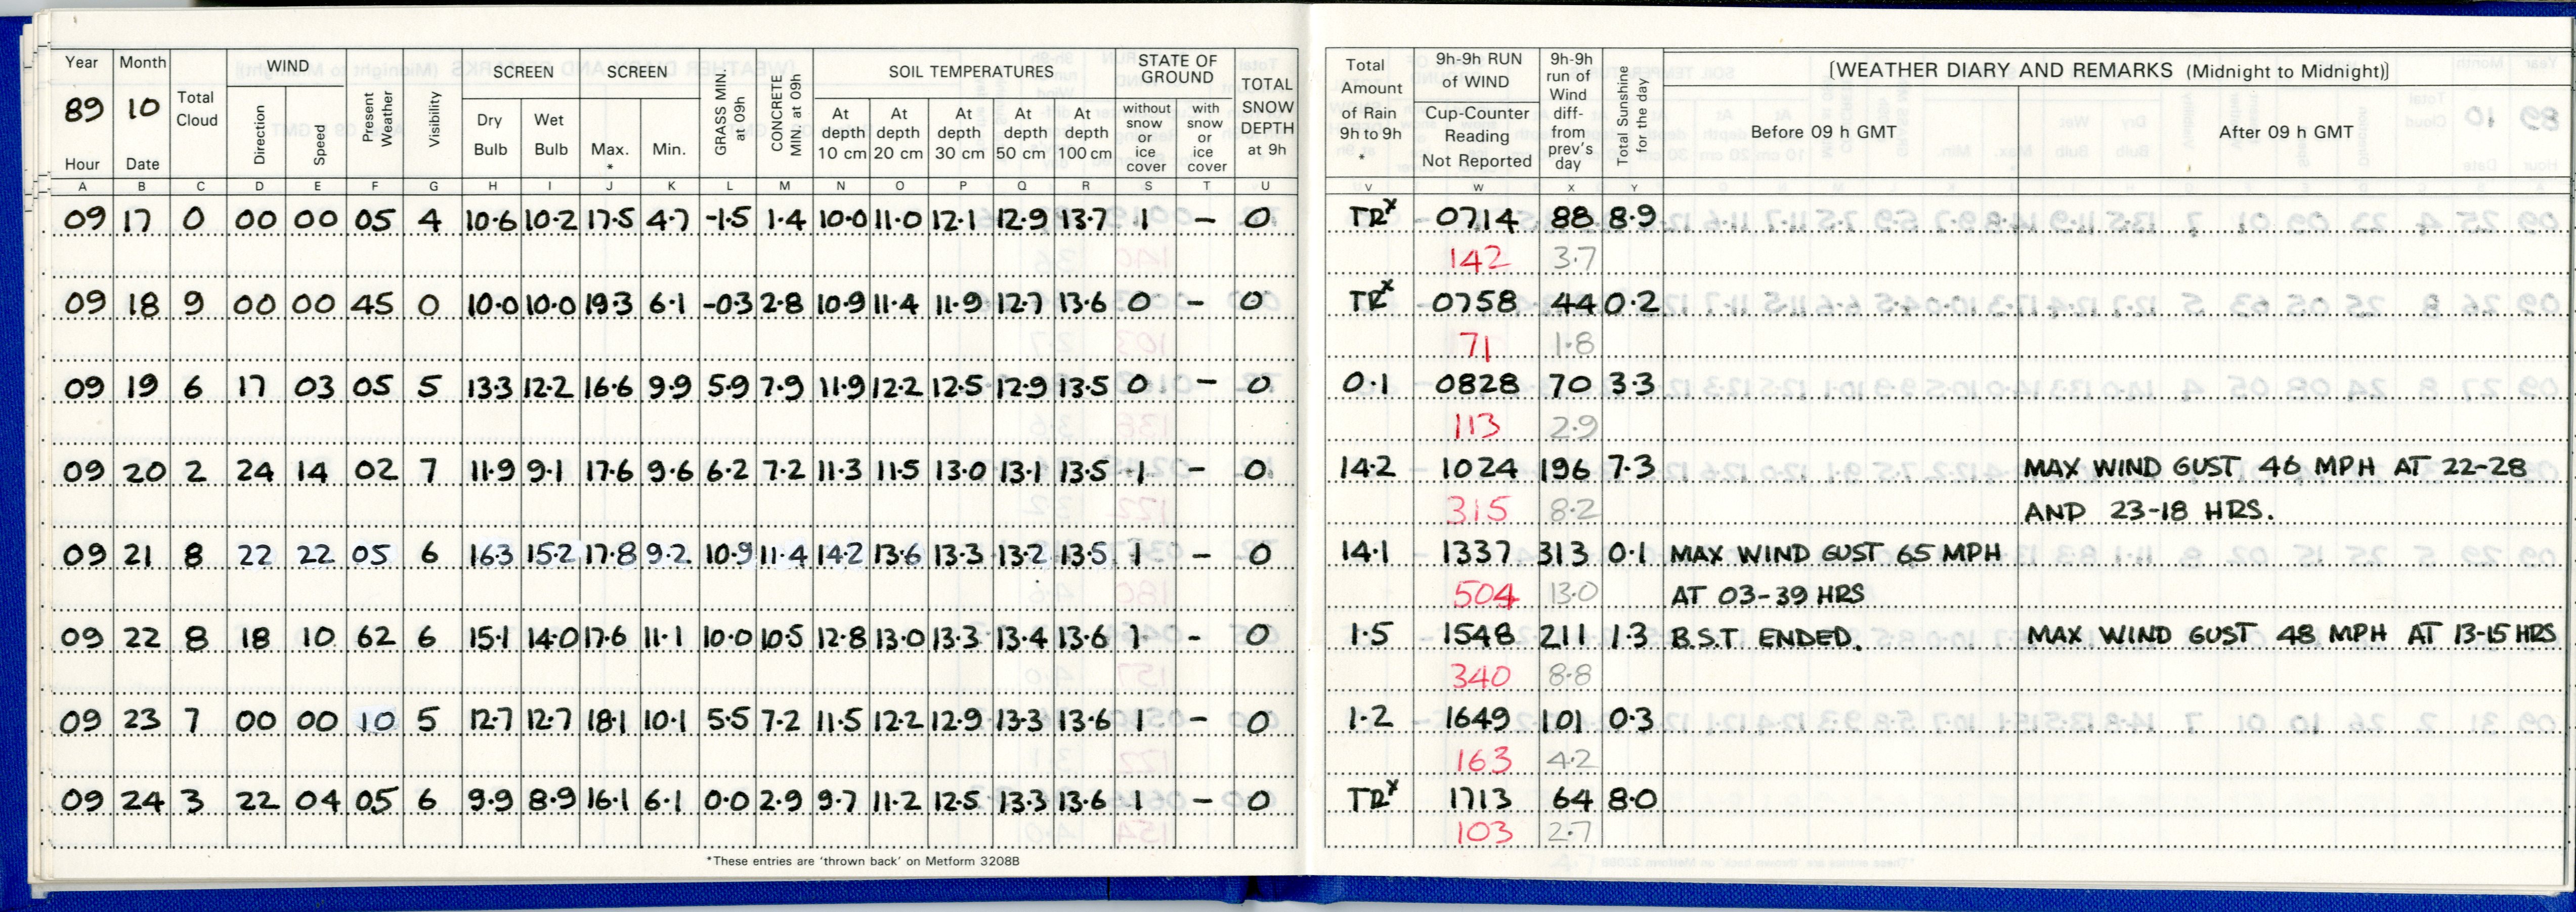 Year Month WIND SCREEN SCREEN SOIL TEMPERATURES STATE OF GROUND TOTAL SNOW DEPTH at 9h Total Amount of Rain 9h to 9h * 9h-9h RUN of WIND 9h-9h run of Wind diff- from prev's day Total Sunshine for the day [WEATHER DIARY AND REMARKS (Midnight to Midnight)]
89 10 Total Cloud Direction Speed Present Weather Visibility Dry Bulb Wet Bulb Max. * Min. GRASS MIN. at 09h CONCRETE MIN. at 09h At depth 10 cm At depth 20 cm At depth 30 cm At depth 50 cm At depth 100 cm without snow or ice cover with snow or ice cover Cup-Counter Reading Not Reported Before 09 h GMT After 09 h GMT
Hour Date
A B C D E F G H I J K L M N O P Q R S T U V W X Y
09 17 0 00 00 05 4 10.6 10.2 17.5 4.7 -1.5 1.4 10.0 11.0 12.1 12.9 13.7 1 – 0 TRx 0714 88 8.9
142 3.7
09 18 9 00 00 45 0 10.0 10.0 19.3 6.1 -0.3 2.8 10.9 11.4 11.9 12.7 13.6 0 – 0 TRx 0758 44 0.2
71 1.8
09 19 6 17 03 05 5 13.3 12.2 16.6 9.9 5.9 7.9 11.9 12.2 12.5 12.9 13.5 0 – 0 0.1 0828 70 3.3
113 2.9
09 20 2 24 14 02 7 11.9 9.1 17.6 9.6 6.2 7.2 11.3 11.5 13.0 13.1 13.5 1 – 0 14.2 1024 196 7.3 MAX WIND GUST 46 MPH AT 22-28
315 8.2 AND 23-18 HRS.
09 21 8 22 22 05 6 16.3 15.2 17.8 9.2 10.9 11.4 14.2 13.6 13.3 13.2 13.5 1 – 0 14.1 1337 313 0.1 MAX WIND GUST 65 MPH
504 13.0 AT 03-39 HRS
09 22 8 18 10 62 6 15.1 14.0 17.6 11.1 10.0 10.5 12.8 13.0 13.3 13.4 13.6 1 – 0 1.5 1548 211 1.3 B.S.T ENDED. MAX WIND GUST 48 MPH AT 13-15 HRS
340 8.8
09 23 7 00 00 10 5 12.7 12.7 18.1 10.1 5.5 7.2 11.5 12.2 12.9 13.3 13.6 1 – 0 1.2 1649 101 0.3
163 4.2
09 24 3 22 04 05 6 9.9 8.9 16.1 6.1 0.0 2.9 9.7 11.2 12.5 13.3 13.6 1 – 0 TRx 1713 64 8.0
103 2.7
*These entries are 'thrown back' on Metform 3208B